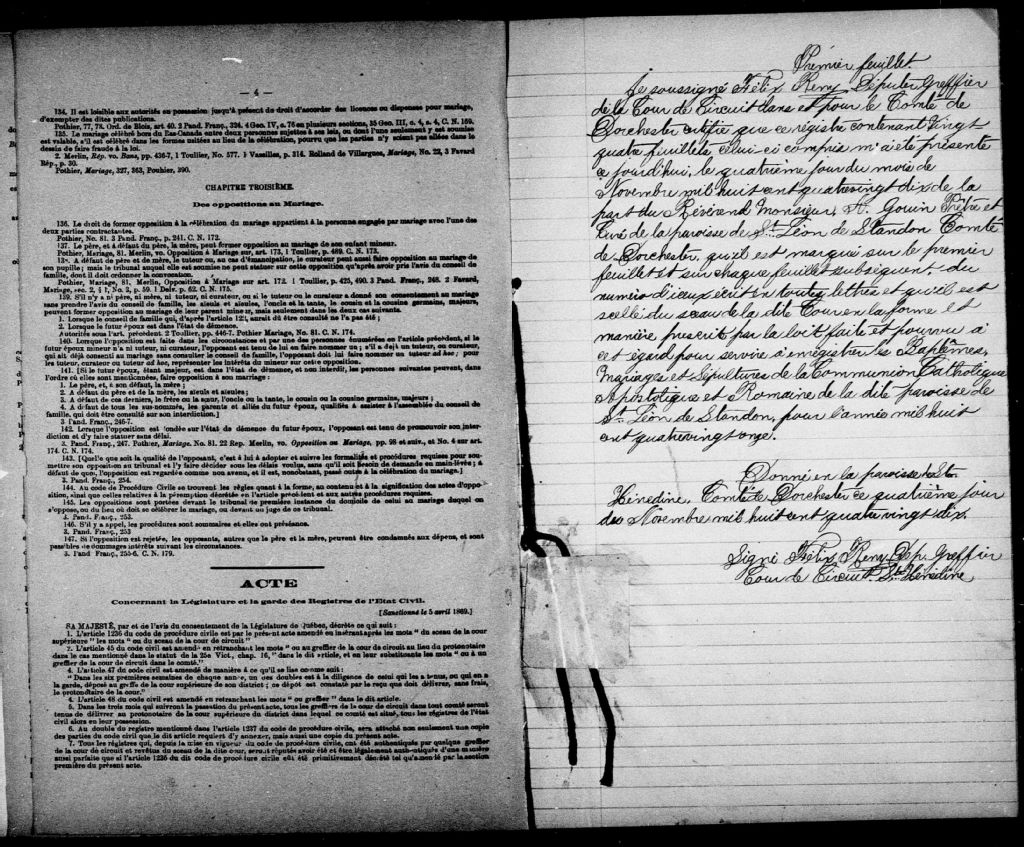 — 4 —
134. Il est loisible aux autorités en possession jusqu'à présent de droit d'accorder des licences ou dispenses pour mariage,
d'exempter des dites publications.
Pothier, 77, 78. Ord. de Blois, art. 40. 2 Pand. Franç., 324. 4 Geo. IV, c. 76 en plusieurs sections, 35 Geo. III, c. 4, s. 4, C. N. 169.
135. Le mariage célébré hors du Bas-Canada entre deux personnes sujettes à ses lois, ou dont l'une seulement y est soumise
est valable, s'il est célébré dans les formes usitées au lieu de la célébration, pourvu que les parties n'y soient pas allées dans le
dessin de faire fraude à la loi.
2. Merlin, Rép. vo. Bans, pp. 436-7, 1 Toullier, No. 577. 1 Vaseilles, p. 314. Rolland de Villargues, Mariage, No. 22, 3 Favard
Rép., p. 30.
Pothier, Mariage, 327, 363, Pouhier, 390.
CHAPITRE TROISIÈME.
Des oppositions au Mariage.
136. Le droit de former opposition à la célébration du mariage appartient à la personne engagée par mariage avec l'une des
deux parties contractantes.
Pothier, No. 81. 3 Pand. Franç., p. 241. C. N. 172.
137. Le père, et à défaut du père, la mère, peut former opposition au mariage de son enfant mineur.
Pothier, Mariage, 81. Merlin, vo. Opposition à Mariage sur art. 173, 1 Toullier, p. 489, C. N. 173.
138. A défaut de père et de mère, le tuteur, ou, au cas d'émancipation, le curateur peut aussi faire opposition au mariage de
son pupille; mais le tribunal auquel elle est soumise ne peut statuer sur cette opposition qu'après avoir pris l'avis du conseil de
famille, dont il doit ordonner la convocation.
Pothier, Mariage, 81, Merlin, Opposition à Mariage sur art. 172. 1 Toullier, p. 425, 490. 3 Pand. Franç., 248. 2 Favard,
Mariage, sec. 2, § 1, No. 2, p. 59. 1 Delv. p. 62. C. N. 175.
139. S'il n'y a ni père, ni mère, ni tuteur, ni curateur, ou si le tuteur ou le curateur a donné son consentement au mariage
sans prendre l'avis du conseil de famille, les aïeuls et aïeules, l'oncle et la tante, le cousin et la cousine germains, majeurs,
peuvent former opposition au mariage de leur parent mineur, mais seulement dans les deux cas suivants:
1. Lorsque le conseil de famille qui, d'après l'article 122, aurait dû être consulté ne l'a pas été;
2. Lorsque le futur époux est dans l'état de démence.
Autorités sous l'art. précédent. 2 Toullier, pp. 446-7. Pothier Mariage, No. 81. C. N. 174.
140. Lorsque l'opposition est faite dans les circonstances et par une des personnes énumérées en l'article précédent, si le
futur époux mineur n'a ni tuteur, ni curateur, l'opposant est tenu de lui en faire nommer un; s'il a déjà un tuteur, ou curateur,
qui ait déjà consenti au mariage sans consulter le conseil de famille, l'opposant doit lui faire nommer un tuteur ad hoc; pour
les tuteur, curateur ou tuteur ad hoc, représenter les intérêts du mineur sur cette opposition.
141. [Si le futur époux, étant majeur, est dans l'état de démence, et non interdit, les personnes suivantes peuvent, dans
l'ordre où elles sont mentionnées, faire opposition à son mariage:
1. Le père, et, à son défaut, la mère;
2. A défaut du père et de la mère, les aïeuls et aïeules;
3. A défaut de ces derniers, le frère ou la sœur, l'oncle ou la tante, le cousin ou la cousine germains, majeurs;
4. A défaut de tous les sus-nommés, les parents et alliés du futur époux, qualifiés à assister à l'assemblée du conseil de
famille, qui doit être consulté sur son interdiction.]
3 Pand. Franç., 246-7.
142. Lorsque l'opposition est fondée sur l'état de démence du futur époux, l'opposant est tenu de promouvoir son inter-
diction et d'y faire statuer sans délai.
3. Pand. Franç., 247. Pothier, Mariage. No. 81. 22 Rep. Merlin, vo. Opposition au Mariage, pp. 98 et suiv., et No. 4 sur art.
174. C. N. 174.
143. [Quel que soit la qualité de l'opposant, c'est à lui à adopter et suivre les formalités et procédures requises pour sou-
mettre son opposition au tribunal et l'y faire décider sous les délais voulus, sans qu'il soit besoin de demande en main-levée; à
défaut de quoi, l'opposition est regardée comme non avenu, et il est, nonobstant, passé outre à la célébration du mariage.]
3. Pand. Franç., 254.
144. Au code de Procédure Civile se trouvent les règles quant à la forme, au contenu et à la signification des actes d'oppo-
sition, ainsi que celles relatives à la péremption décrétée en l'article précédent et aux autres procédures requises.
145. Les oppositions sont portées devant le tribunal de première instance du domicile de celui au mariage duquel on
s'oppose, ou du lieu où doit se célébrer le mariage, ou devant un juge de ce tribunal.
3. Pand. Franç., 253.
146. S'il y a appel, les procédures sont sommaires et elles ont préséance.
3. Pand. Franç., 253
147. Si l'opposition est rejetée, les opposants, autres que le père et la mère, peuvent être condamnés aux dépens, et sont
passibles de dommages intérêts suivant les circonstances.
3. Pand Franç., 255-6. C. N. 179.
ACTE
Concernant la Législature et la garde des Registres de l'Etat Civil.
[Sanctionné le 5 avril 1869.]
SA MAJESTÉ, par et de l'avis du consentement de la Législature de Québec, décrète ce qui suit:
1. L'article 1236 du code de procédure civile est par le présent acte amendé en insérant après les mots "du sceau de la cour
supérieure" les mots "ou du sceau de la cour de circuit"
2. L'article 45 du code civil est amendé en retranchant les mots "ou au greffier de la cour de circuit au lieu du protonotaire
dans le cas mentionné dans le statut de la 25e Vict., chap. 16," dans le dit article, et en leur substituant les mots "ou à un
greffier de la cour de circuit dans le comté."
3. L'article 47 du code civil est amendé de manière à ce qu'il se lise comme suit:
"Dans les six premières semaines de chaque année, un des doubles est à la diligence de celui qui les a tenus, ou qui en a
la garde, déposé au greffe de la cour supérieure de son district; ce dépôt est constaté par le reçu que doit délivrer, sans frais,
le protonotaire de la cour."
4. L'article 48 du code civil est amendé en retranchant les mots "ou greffier" dans le dit article.
5. Dans les trois mois qui suivront la passation du présent acte, tous les greffiers de la cour de circuit dans tout comté seront
tenus de délivrer au protonotaire de la cour supérieure du district dans lequel ce comté est situé, tous les régistres de l'état
civil alors en leur possession.
6. Au double du registre mentionné dans l'article 1237 du code de procédure civile, sera attaché non seulement une copie
des parties du code civil que le dit article requiert d'y annexer, mais aussi une copie du présent acte.
7. Tous les régistres qui, depuis la mise en vigueur du code de procédure civile, ont été authentiqués par quelque greffier
de la cour de circuit et revêtus du sceau de la dite cour, seront réputés avoir été et être légalement authentiqués d'une manière
aussi parfaite que si l'article 1236 du dit code de procédure civile eût été primitivement décrété tel qu'amendé par la section
première du présent acte.
Premier feuillet.
Je soussigné Félix Remy Député Greffier
de la Cour de Circuit dans et pour le Comté de
Dorchester certifie que ce régistre contenant Vingt-
quatre feuillets celui-ci compris m'a été présenté
ce jourd'hui, le quatrième jour du mois de
Novembre mil huit cent quatrevingt dix de la
part du Révérend Monsieur, A. Gouin Prêtre et
Curé de la paroisse de St. Léon de Standon Comté
de Dorchester, qu'il est marqué sur le premier
feuillet et sur chaque feuillet subséquent, du
numéro d'iceux écrit en toutes lettres et qu'il est
scellé du sceau de la dite Cour en la forme et
manière prescrit par la loi t faite et pourvu à
cet égard pour servir à enrégistrer les Baptêmes,
Mariages et Sépultures de la Communion Catholique
Apostolique et Romaine de la dite paroisse de
St. Léon de Standon, pour l'année mil huit
cent quatrevingt onze.
Donné en la paroisse de Ste
Hénédine, Comté de Dorchester ce quatrième jour
de Novembre mil huit cent quatrevingt dix.
Signé Félix Remy Dép. Greffier
Cour de Circuit Ste Hénédine,